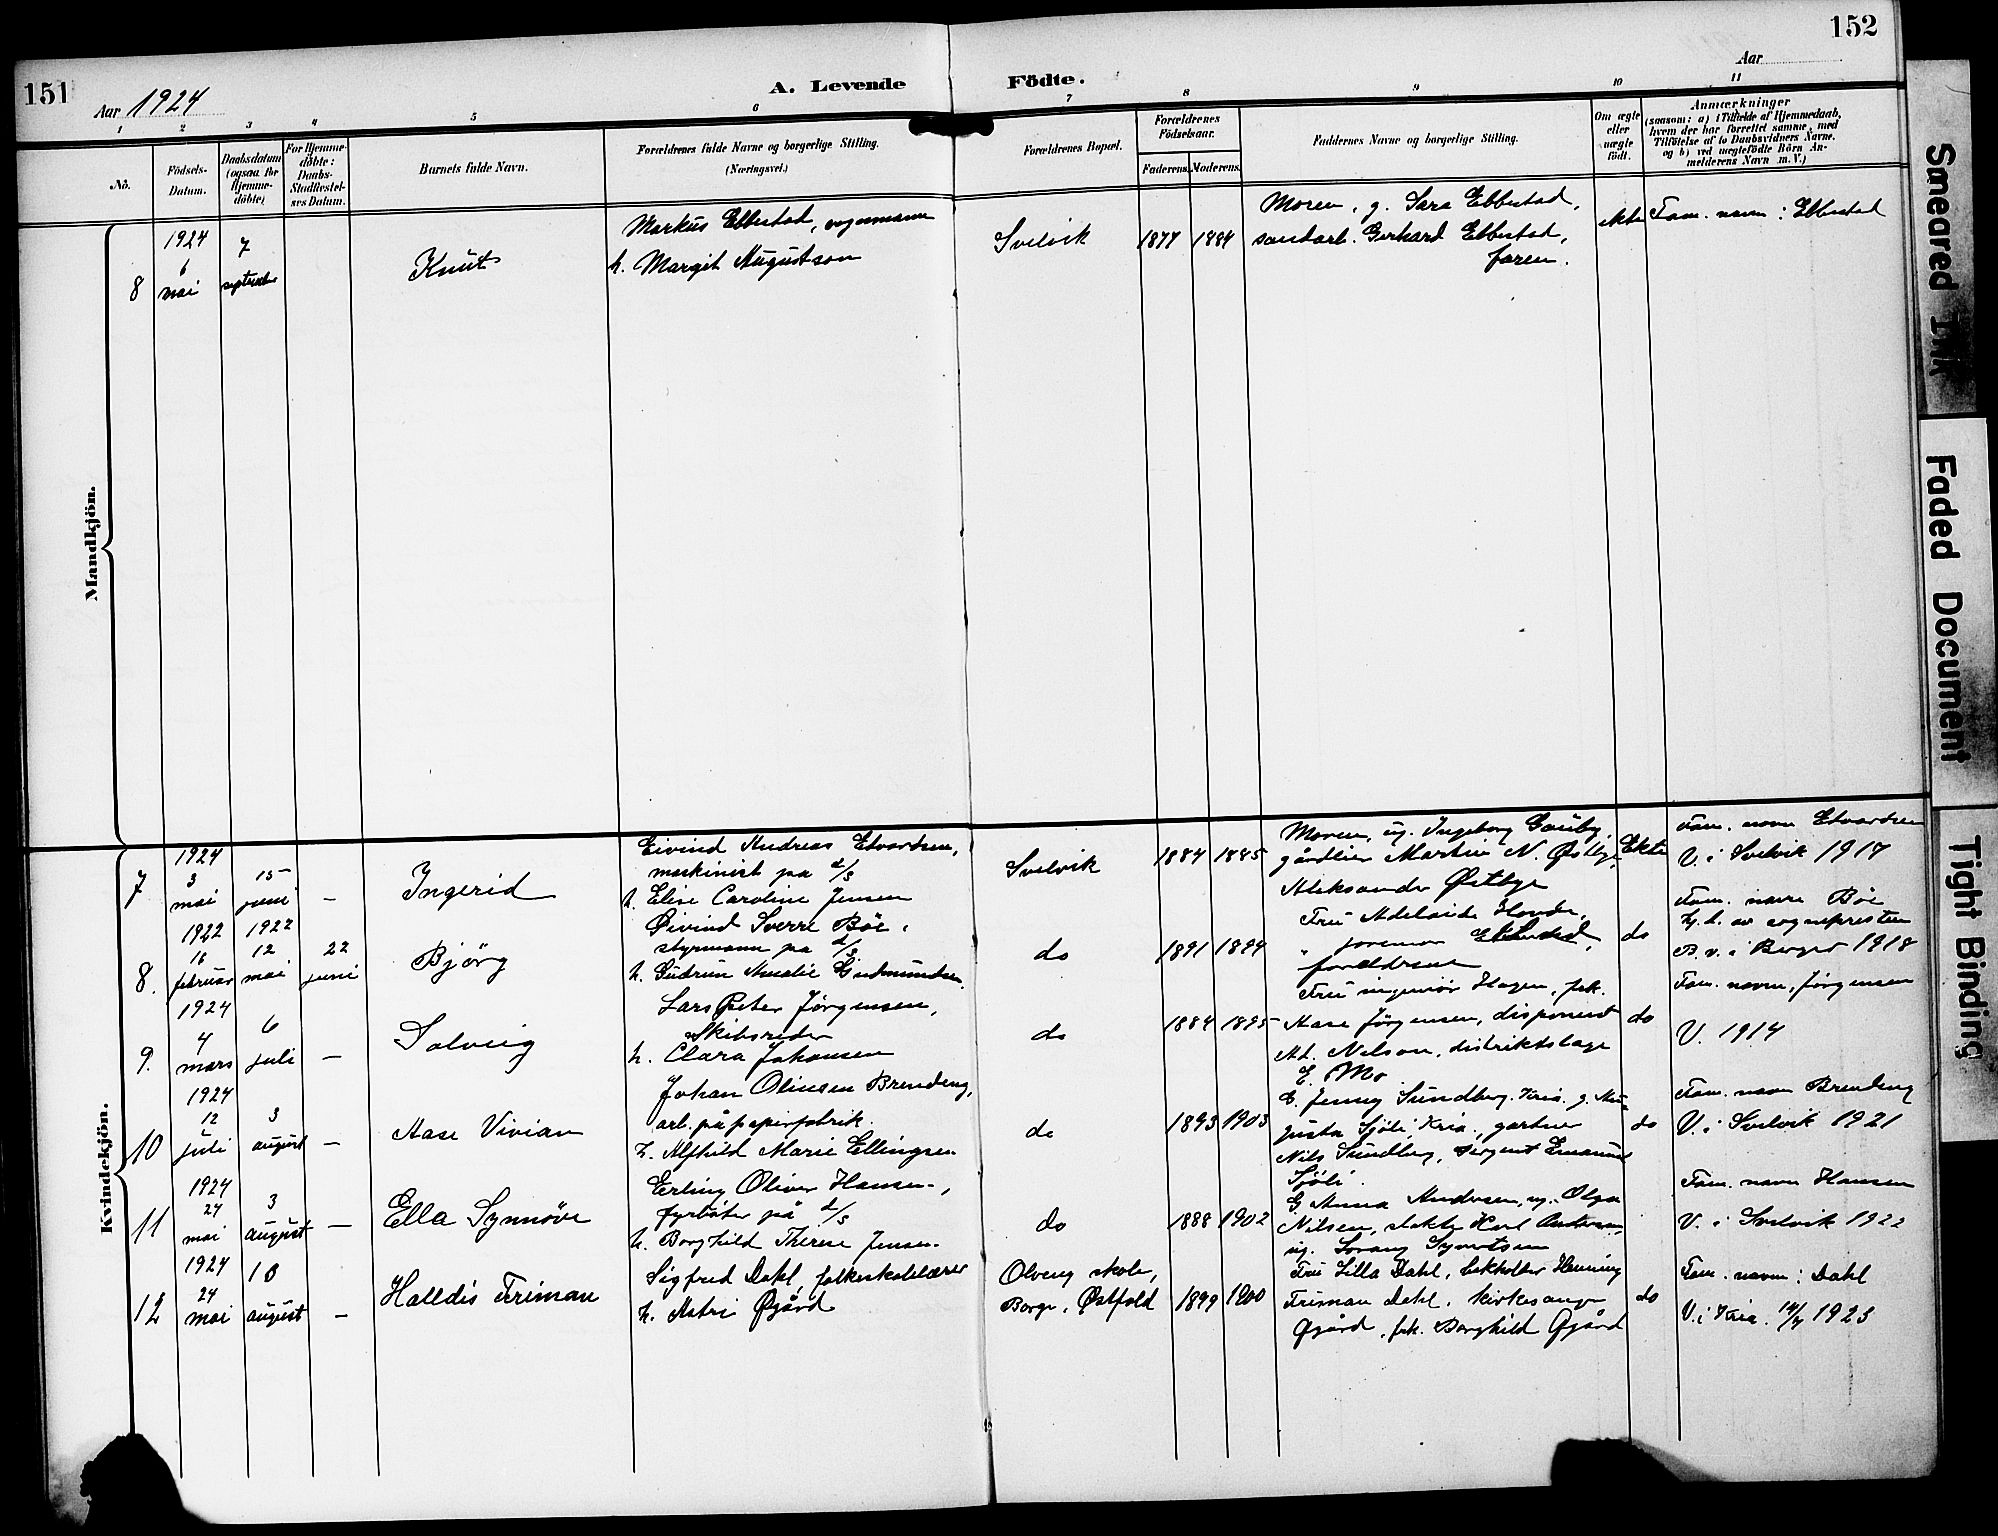 151
152
Aar 1924
A. Levende
Födte.
Aar
1 2 3 4 5 6 7 8 9 10 11
No.
Födsels-
Datum.
Daabsdatum
(ogsaa for
Hjemme-
döbte)
For Hjemme-
döbte:
Daabs-
Stadfæstel-
ses Datum.
Barnets fulde Navn.
Forældrenes fulde Navne og borgerlige Stilling.
(Næringsvei.)
Forældrenes Bopæl.
Forældrenes
Födselsaar.
Faderens. Moderens.
Faddernes Navne og borgerlige Stilling.
Om ægte
eller
uægte
födt.
Anmærkninger
(saasom: a) i Tilfælde af Hjemmedaab,
hvem der har forrettet samme, med
Tilföielse af to Daabsvidners Navne.
og b) ved uægtefödte Börn An-
melderens Navn m. V.)
Mandkjön.
8
1924
6
mai
7
september
Knut
Markus Ebbestad, vognmann
h. Margit Augustson
Svelvik
1877 1884
Moren, g. Sara Ebbestad,
sandarb. Gerhard Ebbestad,
faren.
ekte
Fam. navn: Ebbestad
Kvindekjön.
7
1924
3
mai
15
juni
–
Ingerid
Eivind Andreas Edvardsen,
maskinist pa d/s
h. Elise Caroline Jensen
Svelvik
1884 1885
Moren, ug. Ingeborg Gauby,
gårdeier Martin N. Østbye,
Aleksander Østbye
Ekte
Fam. navn Edvardsen
V. i Svelvik 1917
8.
1922
16
februar
1922
12
mai
22
juni
Bjørg
Øivind Sverre Bøe,
styrmann pa d/s
h. Gudrun Amalie Gudmundsen
do
1891 1894
Fru Adelaide Honde,
foreldrene
do
Fam. navn Bøe
Hj. d. av sognepresten
B. v. i Berger 1918
9.
1924
4
mars
6
juli
–
Solveig
Lars Peter Jørgensen,
Skibsreder
h. Clara Johansen
do
1884 1895
Fru ingeniør Hagen, frk.
Aase Jørgensen, disponent
Ad. Nilson, distriktslæge
E. Mo
do
Fam. navn, Jørgensen
V. 1914
10
1924
12
juli
3
august
–
Aase Vivian
Johan Olinsen Brendeng,
arb. på papirfabrik
h. Alfhild Marie Ellingsen
do
1893 1903
E. Jenny Sundberg. Kria. g. Au-
gusta Sjöli, Kria., gartner
Nils Sundberg, sergent Emanuel
Sjöli.
do
Fam. navn Brendeng
V. i Svelvik 1921
11
1924
24
mai
3
august
–
Ella Synnøve
Erling Oliver Hansen,
fyrbøter på d/s
h. Borghild Therese Jensen.
do
1888 1902
G. Anna Andersen, ug. Olga
Nilsen, slakter Karl Andersen,
ug. Sivertsen
Fam. navn Hansen
V. i Svelvik 1922
12
1924
24
mai
10
august
–
Halldis Friman
Sigfred Dahl, folkeskolelærer
h. Astri Øgård
Olveng skole,
Borge, Østfold
1899 1900
Fru Lilla Dahl, bokholder Henning
Friman Dahl, kirkesanger
Øgård, frk. Borghild Øgård
do
Fam. navn: Dahl
V. i Kria. 14/7 1923
Smeared Ink
Faded Document
Tight Binding